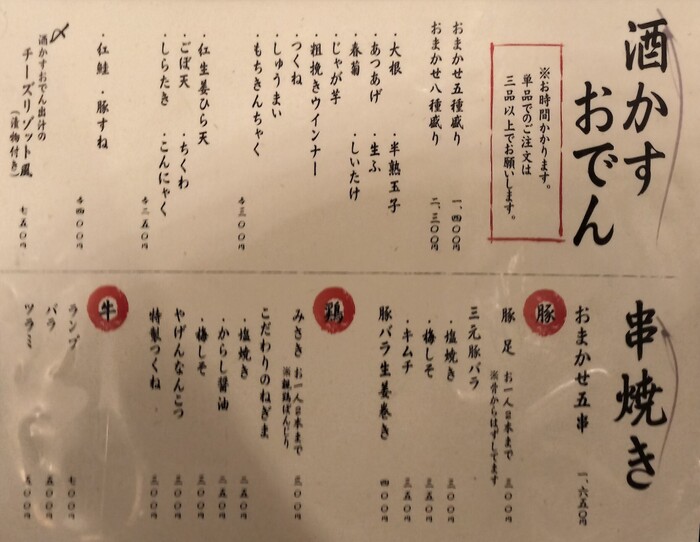 酒かす
おでん
※お時間かかります。
単品でのご注文は
三品以上でお願いします。
おまかせ五種盛り 一、四〇〇円
おまかせ八種盛り 二、三〇〇円
・大根 ・半熟玉子
・あつあげ ・生ふ
・春菊 ・しいたけ
・じゃが芋
・粗挽きウインナー
・つくね
・しゅうまい
・もちきんちゃく 各三〇〇円
・紅生姜ひら天
・ごぼ天 ・ちくわ
・しらたき ・こんにゃく 各二五〇円
・紅鮭 ・豚すね 各四〇〇円
〆
酒かすおでん出汁の
チーズリゾット風
(漬物付き) 七五〇円
串焼き
おまかせ五串 一、六五〇円
豚
豚足 お一人2本まで 三〇〇円
※骨からはずしてます
三元豚バラ
・塩焼き 三〇〇円
・梅しそ 三五〇円
・キムチ 三五〇円
豚バラ生姜巻き 四〇〇円
鶏
みさき お一人2本まで 三〇〇円
※親鶏ぼんじり
こだわりのねぎま
・塩焼き 三五〇円
・からし醤油 三五〇円
・梅しそ 三〇〇円
やげんなんこつ 三〇〇円
特製つくね 三〇〇円
牛
ランプ 七〇〇円
バラ 五〇〇円
ツラミ 五〇〇円